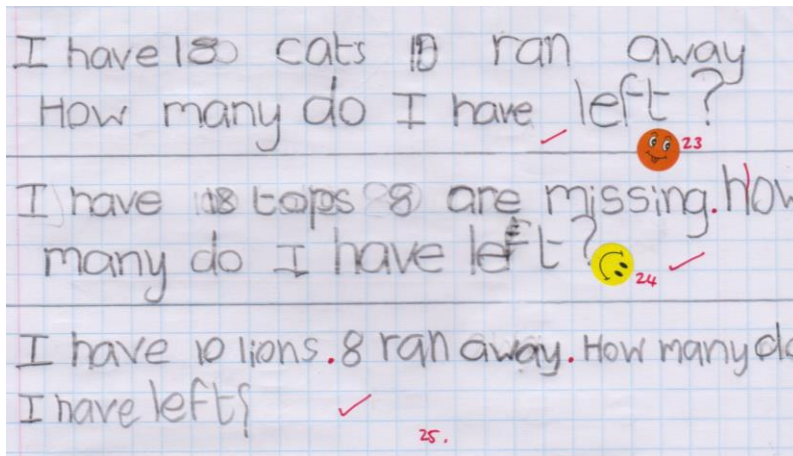 I have 18 cats 10 ran away
How many do I have left?
23
I have 18 tops 8 are missing. How
many do I have left?
24
I have 10 lions. 8 ran away. How many do
I have left?
25.